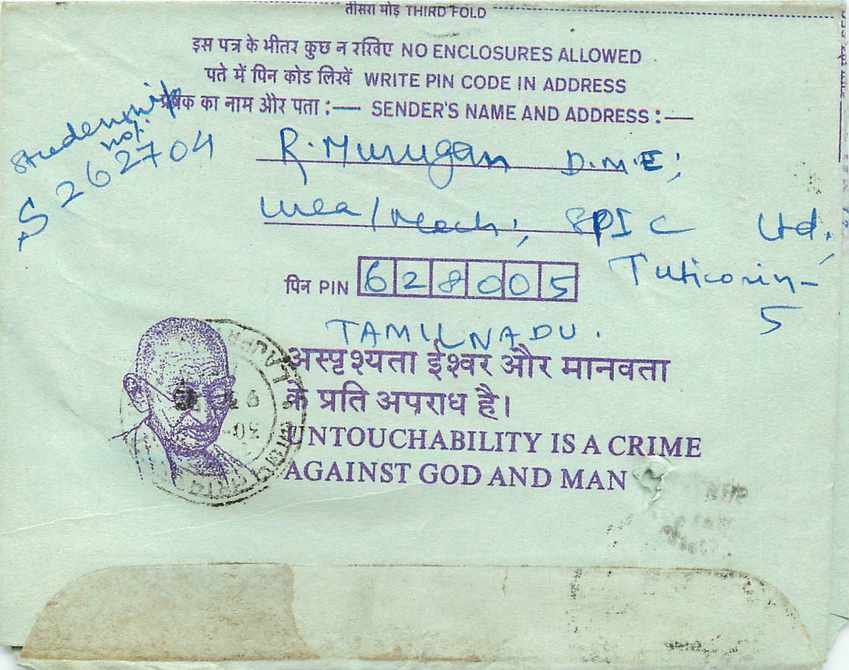 तीसरा मोड़ THIRD FOLD
इस पत्र के भीतर कुछ न रखिए NO ENCLOSURES ALLOWED
पते में पिन कोड लिखें WRITE PIN CODE IN ADDRESS
प्रेषक का नाम और पता :— SENDER'S NAME AND ADDRESS :—
Studentship
no:
S 262704
R. Murugan D.M.E;
Urea/Mech; SPIC Ltd,
पिन PIN 628005 Tuticorin-
5
TAMILNADU.
अस्पृश्यता ईश्वर और मानवता
के प्रति अपराध है।
UNTOUCHABILITY IS A CRIME
AGAINST GOD AND MAN